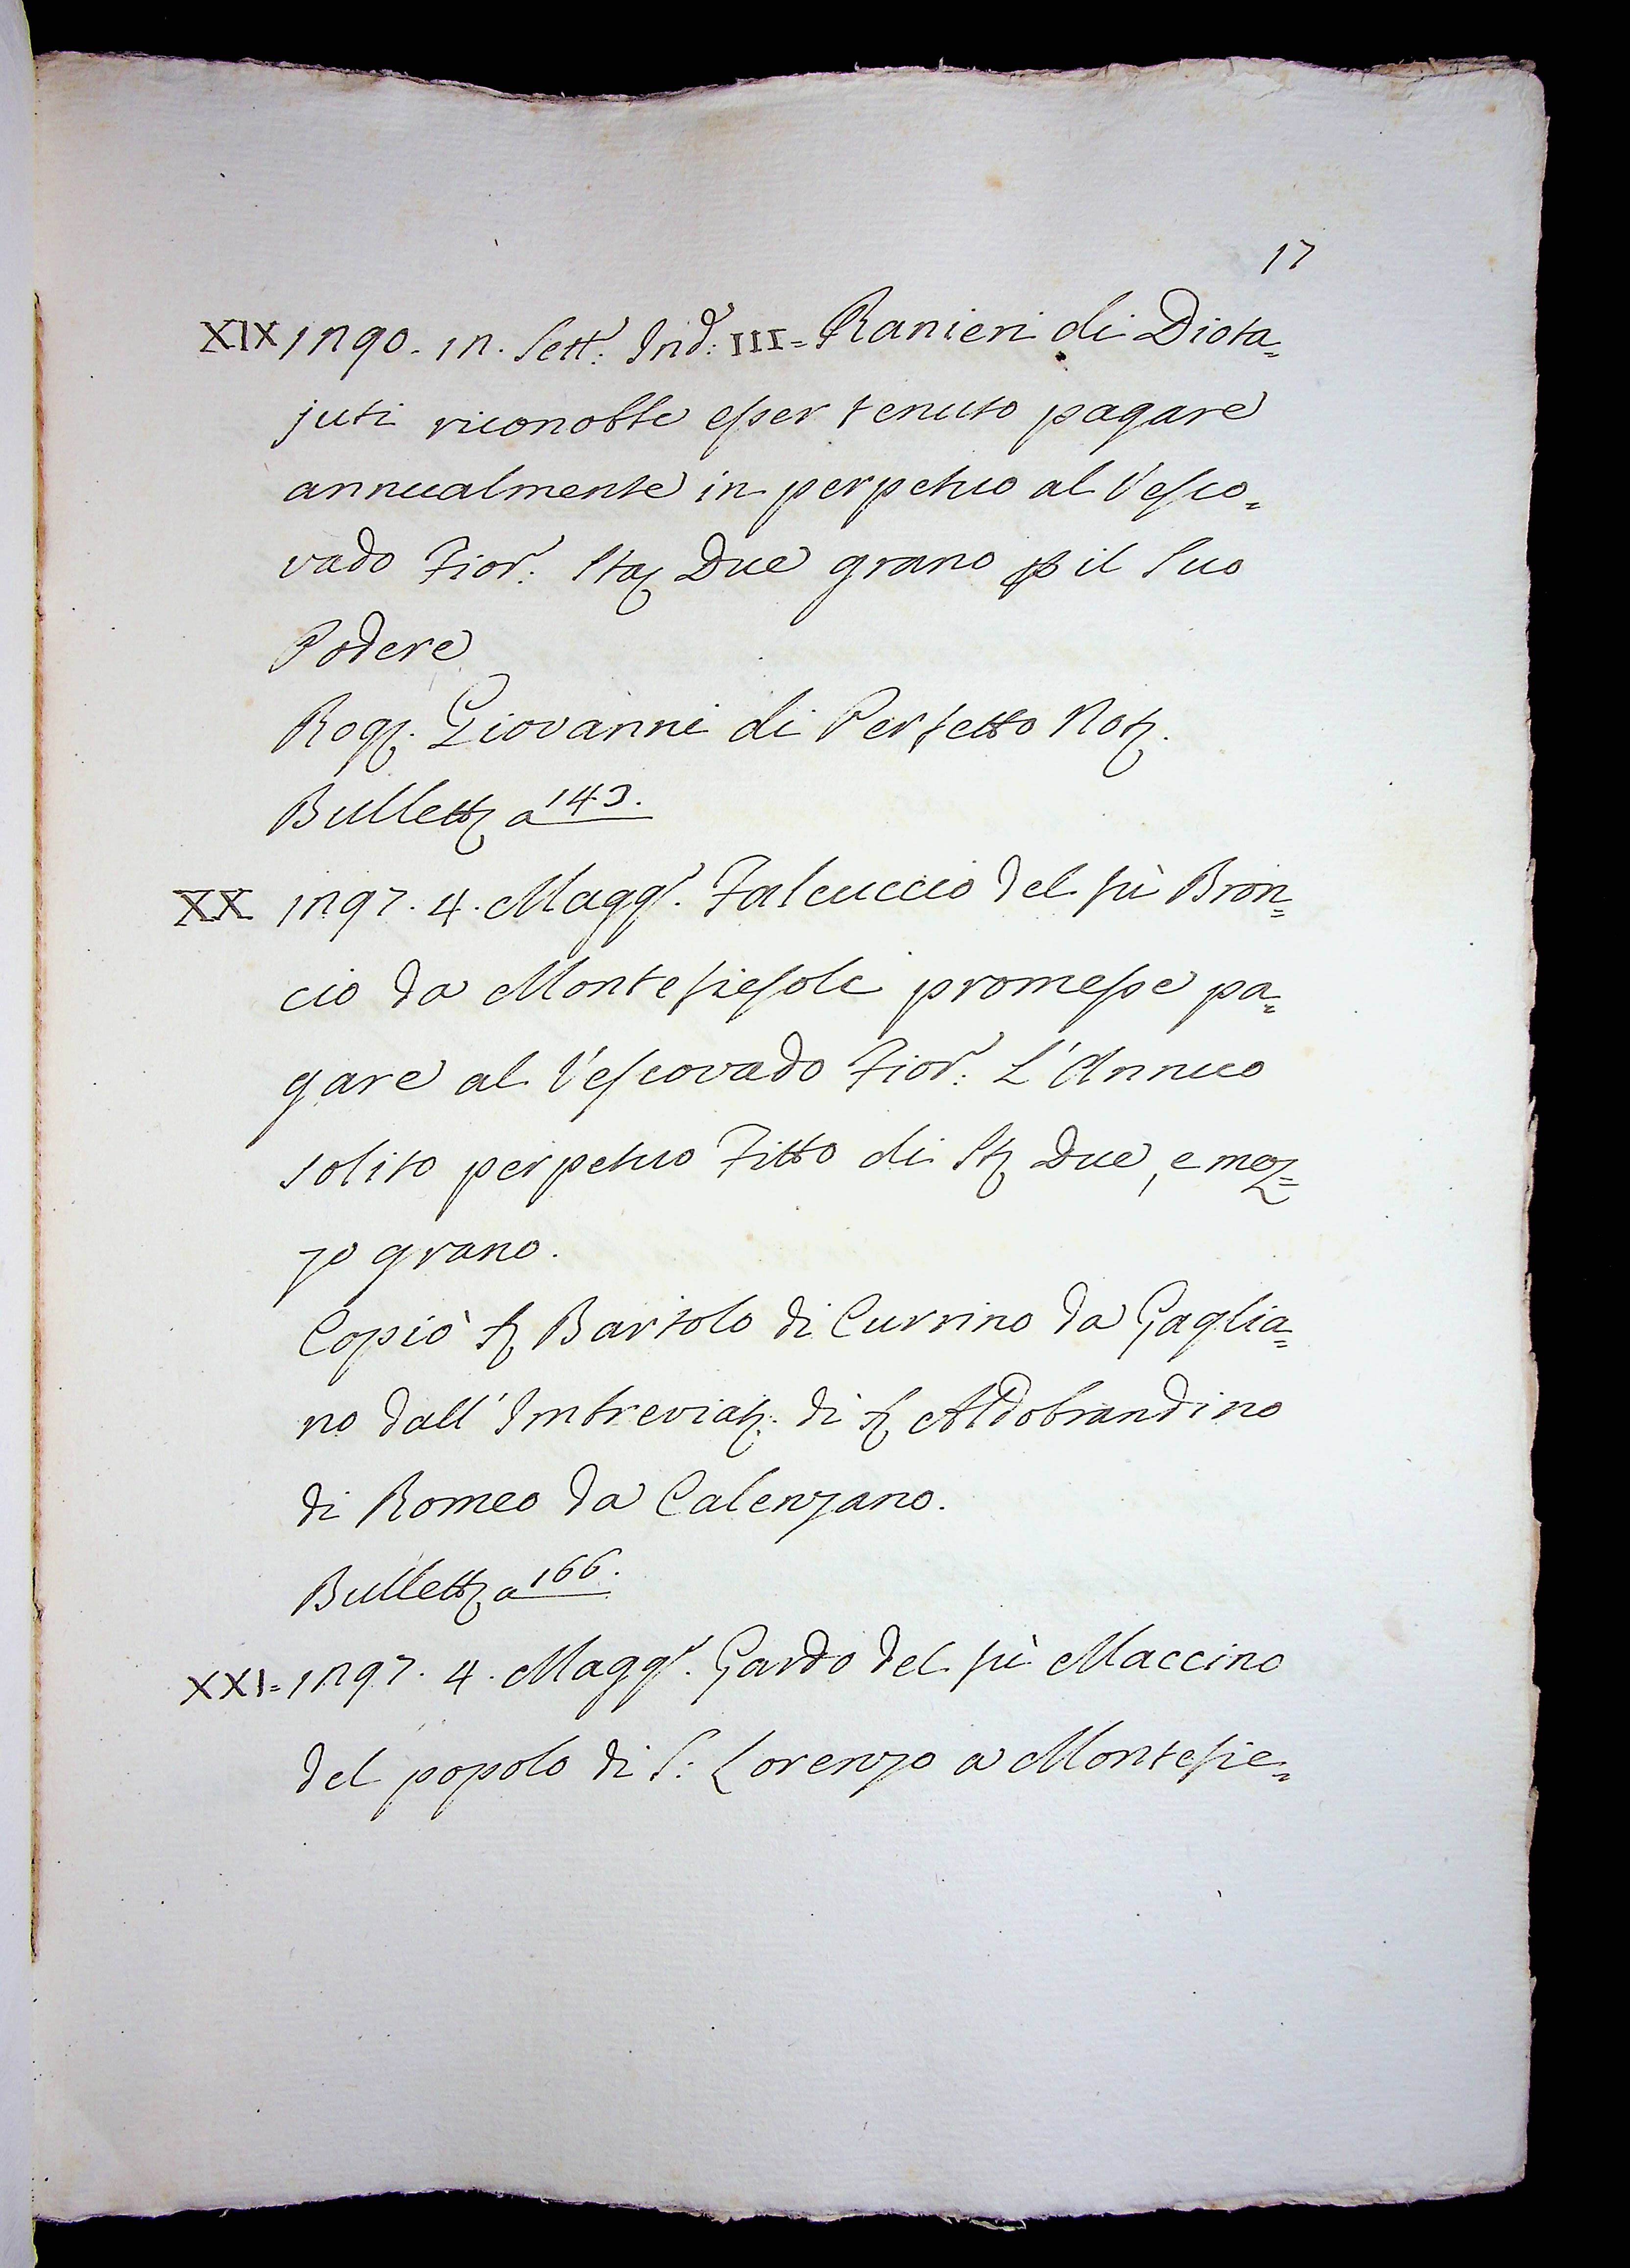 17
XIX 1290. 12. Sett.e Ind: III= Ranieri di Diota=
juti riconobbe esser tenuto pagare
annualmente in perpetuo al Vesco=
vado Fior: Sta Due grano p il Suo
Podere
Rog. Giovanni di Perfetto Not.
Bullett a 143.
XX 1297. 4. Magg. Falcuccio del fù Bron=
cio da Montefiesole promesse pa=
gare al Vescovado Fior: L'Annuo
solito perpetuo Fitto di St Due, e mez=
zo grano.
Copiò S Bartolo di Currino da Gaglia=
no dall'Imbreviat. di S Aldobrandino
di Romeo da Calenzano.
Bullett a 166.
XXI= 1297. 4. Magg. Gardo del fù Maccino
del popolo di S: Lorenzo a Montefie=